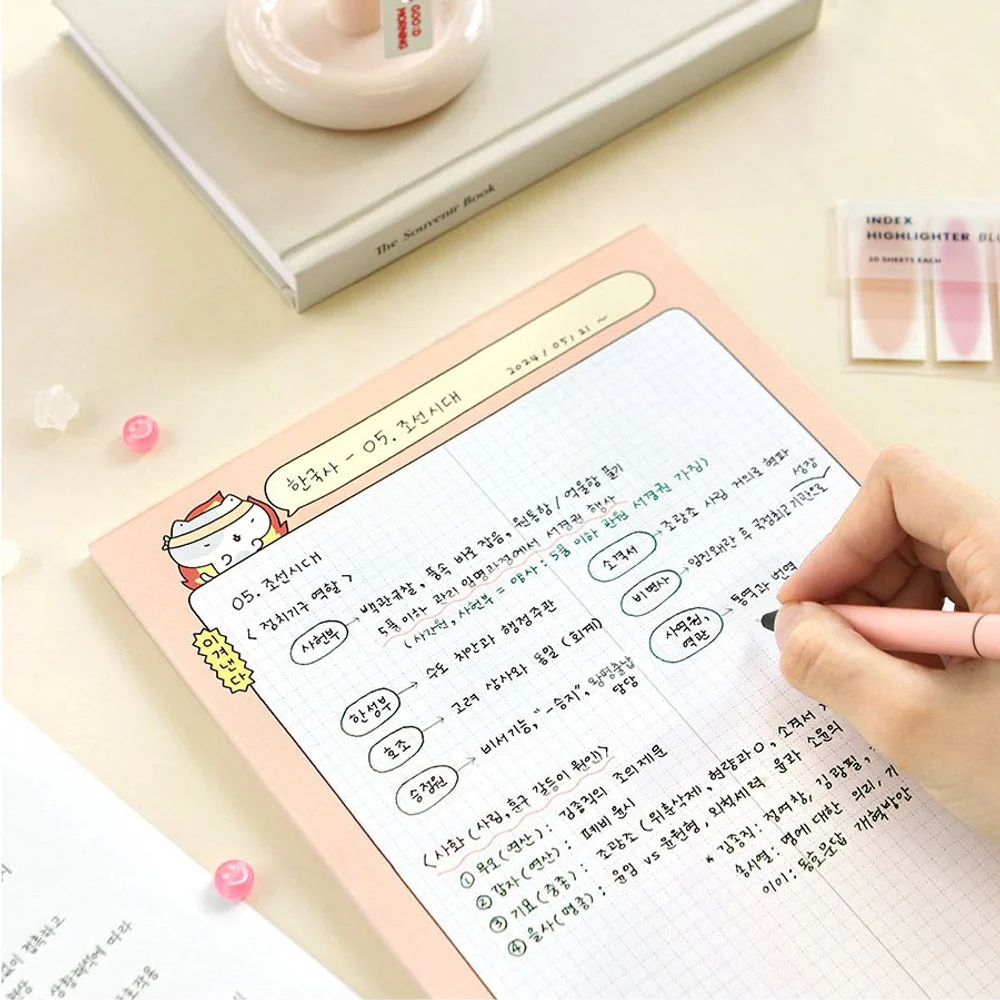 GOO:D
MORNING
The Souvenir Book
INDEX
HIGHLIGHTER BLU
20 SHEETS EACH
한국사 - 05. 조선시대
2024 / 05 / 21 ~
이겨낸다
05. 조선시대
< 정치기구 역할 >
사헌부 → 백관규찰, 풍속 바로 잡음, 원통함 / 억울함 풀기
5품 이하 관리 임명과정에서 서경권 행사
(사간원, 사헌부 = 양사 : 5품 이하 관원 서경권 가짐)
한성부 → 수도 치안과 행정주관
호조 → 고려 삼사와 동일 (회계)
승정원 → 비서기능, "-승지", 왕명출납
담당
소격서 → 조광조 사림 거의로 혁파
비변사 → 임진왜란 후 국정최고기관으로
성장
사역원, 역관 → 통역과 번역
<사화 (사림, 훈구 갈등이 원인)>
① 무오 (연산) : 김종직의 조의제문
② 갑자 (연산) : 폐비 윤씨
③ 기묘 (중종) : 조광조 (위훈삭제, 현량과 O, 소격서
④ 을사 (명종) : 윤임 vs 윤원형, 외척세력 윤과 소윤의
* 김종직 : 정여창, 김굉필,
송시열 : 명에 대한 의리, 기
이이 : 동호문답 개혁방안
없이 접촉하고
현상
상황해석에 따라
호작용